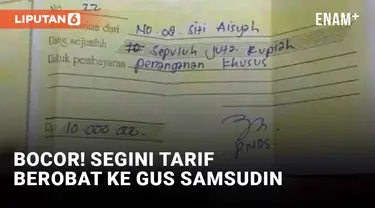 LIPUTAN6
ENAM+
No. 22
dari No. od. Siti Aisyah
Uang sejumlah Sepuluh Juta Rupiah
Untuk pembayaran penanganan khusus
Rp 10.000.000.
BOCOR! SEGINI TARIF
BEROBAT KE GUS SAMSUDIN